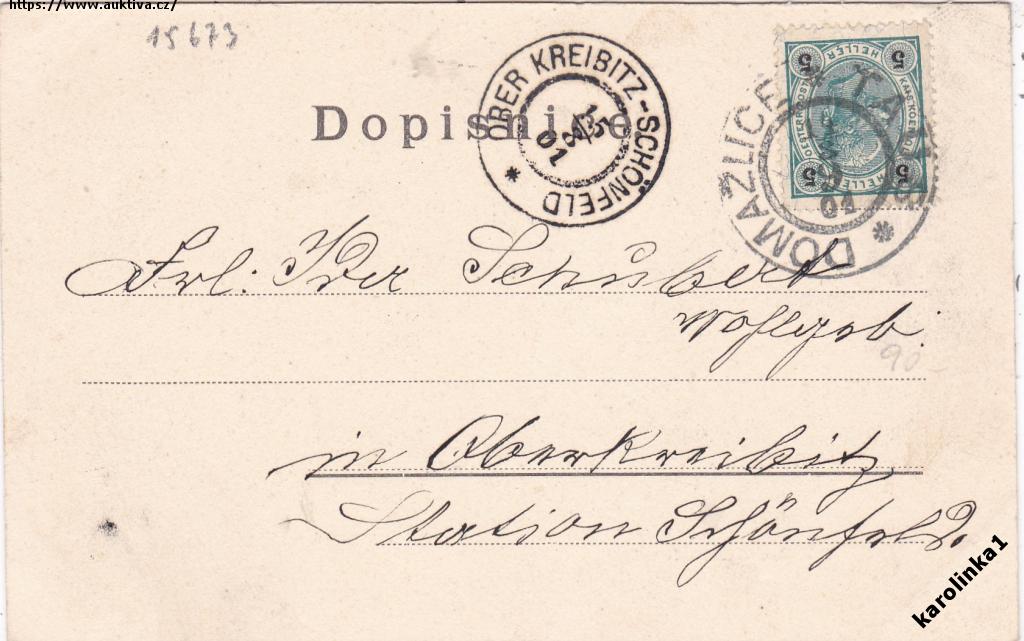 https://www.auktiva.cz/
15673
Dopisnice
OBER KREIBITZ-SCHÖNFELD *
15
01
5 HELLER 5
5 HELLER 5
DOMAŽLICE * TAUS *
01
Frl: Ida Schubert
Wohlgeb.
90
in Oberkreibitz
Station Schönfeld.
karolinka1